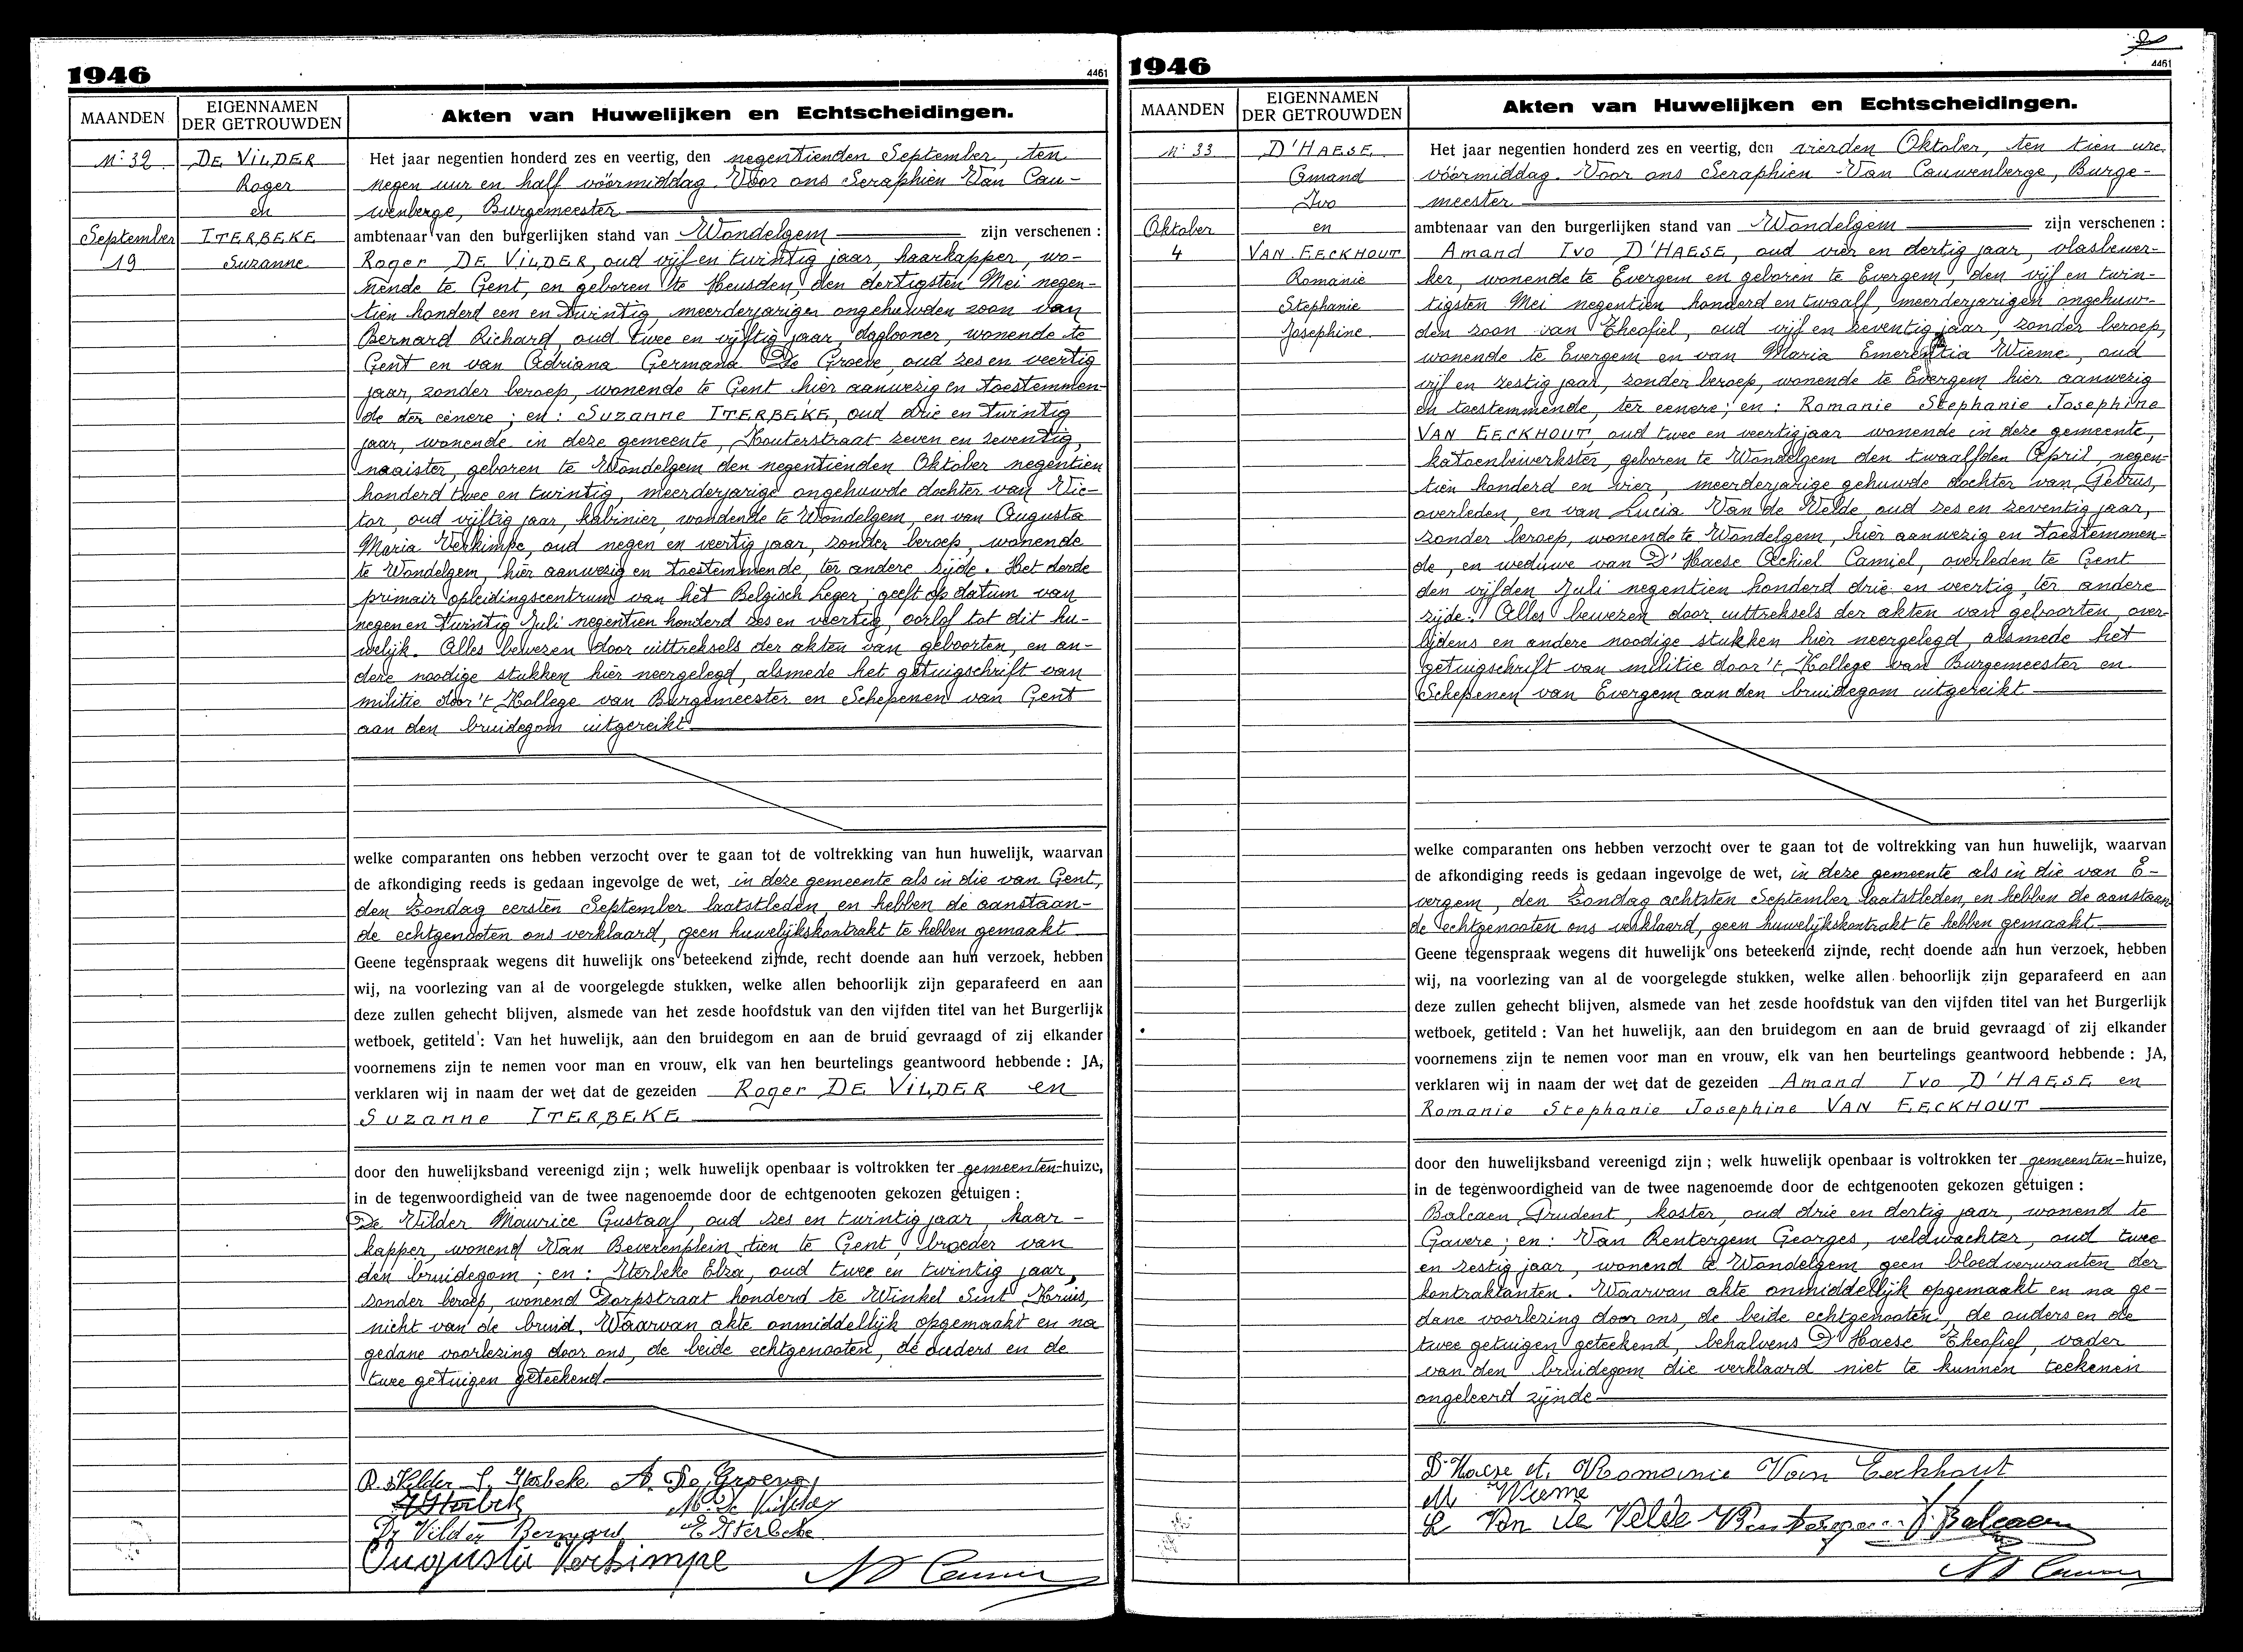 1946
4461
MAANDEN
EIGENNAMEN
DER GETROUWDEN
Akten van Huwelijken en Echtscheidingen.
N: 32.
DE VILDER
Roger
en
September
ITERBEKE
19
Suzanne
Het jaar negentien honderd zes en veertig, den negentienden September, ten
negen uur en half vóórmiddag. Voor ons Seraphien Van Cau-
wenberge, Burgemeester
ambtenaar van den burgerlijken stand van Wondelgem zijn verschenen :
Roger DE VILDER, oud vijf en twintig jaar, haarkapper, wo-
nende te Gent, en geboren te Heusden, den dertigsten Mei negen-
tien honderd een en twintig, meerderjarigen ongehuwden zoon van
Bernard Richard, oud twee en vijftig jaar, daglooner, wonende te
Gent en van Adriana Germana De Groeve, oud zes en veertig
jaar, zonder beroep, wonende te Gent hier aanwezig en toestemmen-
de ter eenere ; en : Suzanne ITERBEKE, oud drie en twintig
jaar, wonende in deze gemeente, Houterstraat zeven en zeventig,
naaister, geboren te Wondelgem den negentienden Oktober negentien
honderd twee en twintig, meerderjarige ongehuwde dochter van Vic-
tor, oud vijftig jaar, kabinier, wondende te Wondelgem, en van Augusta
Maria Verkimpe, oud negen en veertig jaar, zonder beroep, wonende
te Wondelgem, hier aanwezig en toestemmende, ter andere zijde. Het derde
primair opleidingscentrum van het Belgisch Leger, geeft op datum van
negen en twintig Juli negentien honderd zes en veertig, oorlof tot dit hu-
welijk. Alles bewezen door uittreksels der akten van geboorten, en an-
dere noodige stukken hier neergelegd, alsmede het getuigschrift van
militie door 't Kollege van Burgemeester en Schepenen van Gent
aan den bruidegom uitgereikt
welke comparanten ons hebben verzocht over te gaan tot de voltrekking van hun huwelijk, waarvan
de afkondiging reeds is gedaan ingevolge de wet, in deze gemeente als in die van Gent,
den Zondag eersten September laatstleden, en hebben de aanstaan-
de echtgenooten ons verklaard, geen huwelijkskontrakt te hebben gemaakt
Geene tegenspraak wegens dit huwelijk ons beteekend zijnde, recht doende aan hun verzoek, hebben
wij, na voorlezing van al de voorgelegde stukken, welke allen behoorlijk zijn geparafeerd en aan
deze zullen gehecht blijven, alsmede van het zesde hoofdstuk van den vijfden titel van het Burgerlijk
wetboek, getiteld : Van het huwelijk, aan den bruidegom en aan de bruid gevraagd of zij elkander
voornemens zijn te nemen voor man en vrouw, elk van hen beurtelings geantwoord hebbende : JA,
verklaren wij in naam der wet dat de gezeiden Roger DE VILDER en
Suzanne ITERBEKE
door den huwelijksband vereenigd zijn ; welk huwelijk openbaar is voltrokken ter gemeenten-huize,
in de tegenwoordigheid van de twee nagenoemde door de echtgenooten gekozen getuigen :
De Vilder Maurice Gustaaf, oud zes en twintig jaar, haar-
kapper, wonend Van Beverenplein tien te Gent, broeder van
den bruidegom ; en : Iterbeke Elza, oud twee en twintig jaar,
zonder beroep, wonend Dorpstraat honderd te Winkel Sint Kruis,
nicht van de bruid. Waarvan akte onmiddellijk opgemaakt en na
gedane voorlezing door ons, de beide echtgenooten, de ouders en de
twee getuigen geteekend
R. De Vilder S. Iterbeke A. De Groeve
V Iterbeke M. De Vilder
De Vilder Bernard E Iterbeke
Augusta Verkimpe
1946
4461
MAANDEN
EIGENNAMEN
DER GETROUWDEN
Akten van Huwelijken en Echtscheidingen.
N: 33
D'HAESE
Amand
Ivo
Oktober
en
4
VAN EECKHOUT
Romanie
Stephanie
Josephine.
Het jaar negentien honderd zes en veertig, den vierden Oktober, ten tien ure
vóórmiddag. Voor ons Seraphien Van Cauwenberge, Burge-
meester
ambtenaar van den burgerlijken stand van Wondelgem zijn verschenen :
Amand Ivo D'HAESE, oud vier en dertig jaar, vlasbewer-
ker, wonende te Evergem en geboren te Evergem, den vijf en twin-
tigsten Mei negentien honderd en twaalf, meerderjarigen ongehuw-
den zoon van Theofiel, oud vijf en zeventig jaar, zonder beroep,
wonende te Evergem en van Maria Emerentia Wieme, oud
vijf en zestig jaar, zonder beroep, wonende te Evergem hier aanwezig
en toestemmende, ter eenere ; en : Romanie Stephanie Josephine
VAN EECKHOUT, oud twee en veertig jaar wonende in deze gemeente,
katoenbewerkster, geboren te Wondelgem den twaalfden April, negen-
tien honderd en vier, meerderjarige gehuwde dochter van Petrus,
overleden, en van Lucia Van de Velde oud zes en zeventig jaar,
zonder beroep, wonende te Wondelgem, hier aanwezig en toestemmen-
de, en weduwe van D'Haese Achiel Camiel, overleden te Gent
den vijfden Juli negentien honderd drie en veertig, ter andere
zijde. Alles bewezen door uittreksels der akten van geboorten, over-
lijdens en andere noodige stukken hier neergelegd, alsmede het
getuigschrift van militie door 't Kollege van Burgemeester en
Schepenen van Evergem aan den bruidegom uitgereikt
welke comparanten ons hebben verzocht over te gaan tot de voltrekking van hun huwelijk, waarvan
de afkondiging reeds is gedaan ingevolge de wet, in deze gemeente als in die van E-
vergem, den Zondag achtsten September laatstleden, en hebben de aanstaan-
de echtgenooten ons verklaard, geen huwelijkskontrakt te hebben gemaakt
Geene tegenspraak wegens dit huwelijk ons beteekend zijnde, recht doende aan hun verzoek, hebben
wij, na voorlezing van al de voorgelegde stukken, welke allen behoorlijk zijn geparafeerd en aan
deze zullen gehecht blijven, alsmede van het zesde hoofdstuk van den vijfden titel van het Burgerlijk
wetboek, getiteld : Van het huwelijk, aan den bruidegom en aan de bruid gevraagd of zij elkander
voornemens zijn te nemen voor man en vrouw, elk van hen beurtelings geantwoord hebbende : JA,
verklaren wij in naam der wet dat de gezeiden Amand Ivo D'HAESE en
Romanie Stephanie Josephine VAN EECKHOUT
door den huwelijksband vereenigd zijn ; welk huwelijk openbaar is voltrokken ter gemeenten-huize,
in de tegenwoordigheid van de twee nagenoemde door de echtgenooten gekozen getuigen :
Balcaen Prudent, koster, oud drie en dertig jaar, wonend te
Gavere ; en : Van Rentergem Georges, veldwachter, oud twee
en zestig jaar, wonend te Wondelgem geen bloedverwanten der
kontraktanten. Waarvan akte onmiddellijk opgemaakt en na ge-
dane voorlezing door ons, de beide echtgenooten, de ouders en de
twee getuigen geteekend, behalvens D'Haese Theofiel, vader
van den bruidegom die verklaard niet te kunnen teekenen
ongeleerd zijnde
D'Haese A. Romanie Van Eeckhout
M Wieme
L Van de Velde Rentergem P. Balcaen